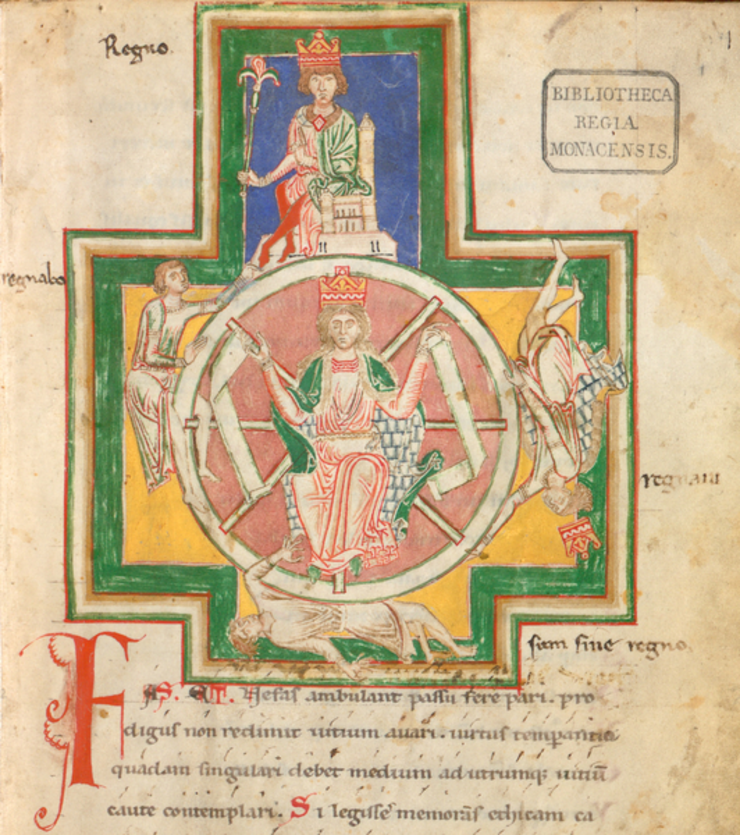 Regno.
BIBLIOTHECA
REGIA
MONACENSIS.
regnabo
regnaui
sum sine regno.
FAS ET Nefas ambulant passu fere pari. pro
digus non redimit uitium auari. uirtus temperantia
quadam singulari debet medium ad utrumq; uitiū
caute contemplari. Si legisse memorās ethicam ca